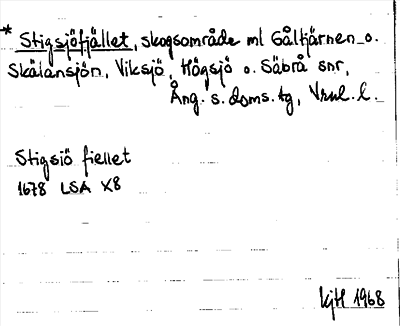 * Stigsjöfjället, skogsområde ml Gåltjärnen o.
Skälansjön, Viksjö, Högsjö o. Säbrå snr,
Ång. s. doms. tg, Vrnl. l.
Stigsjö fiellet
1678 LSA X8
KjH 1968